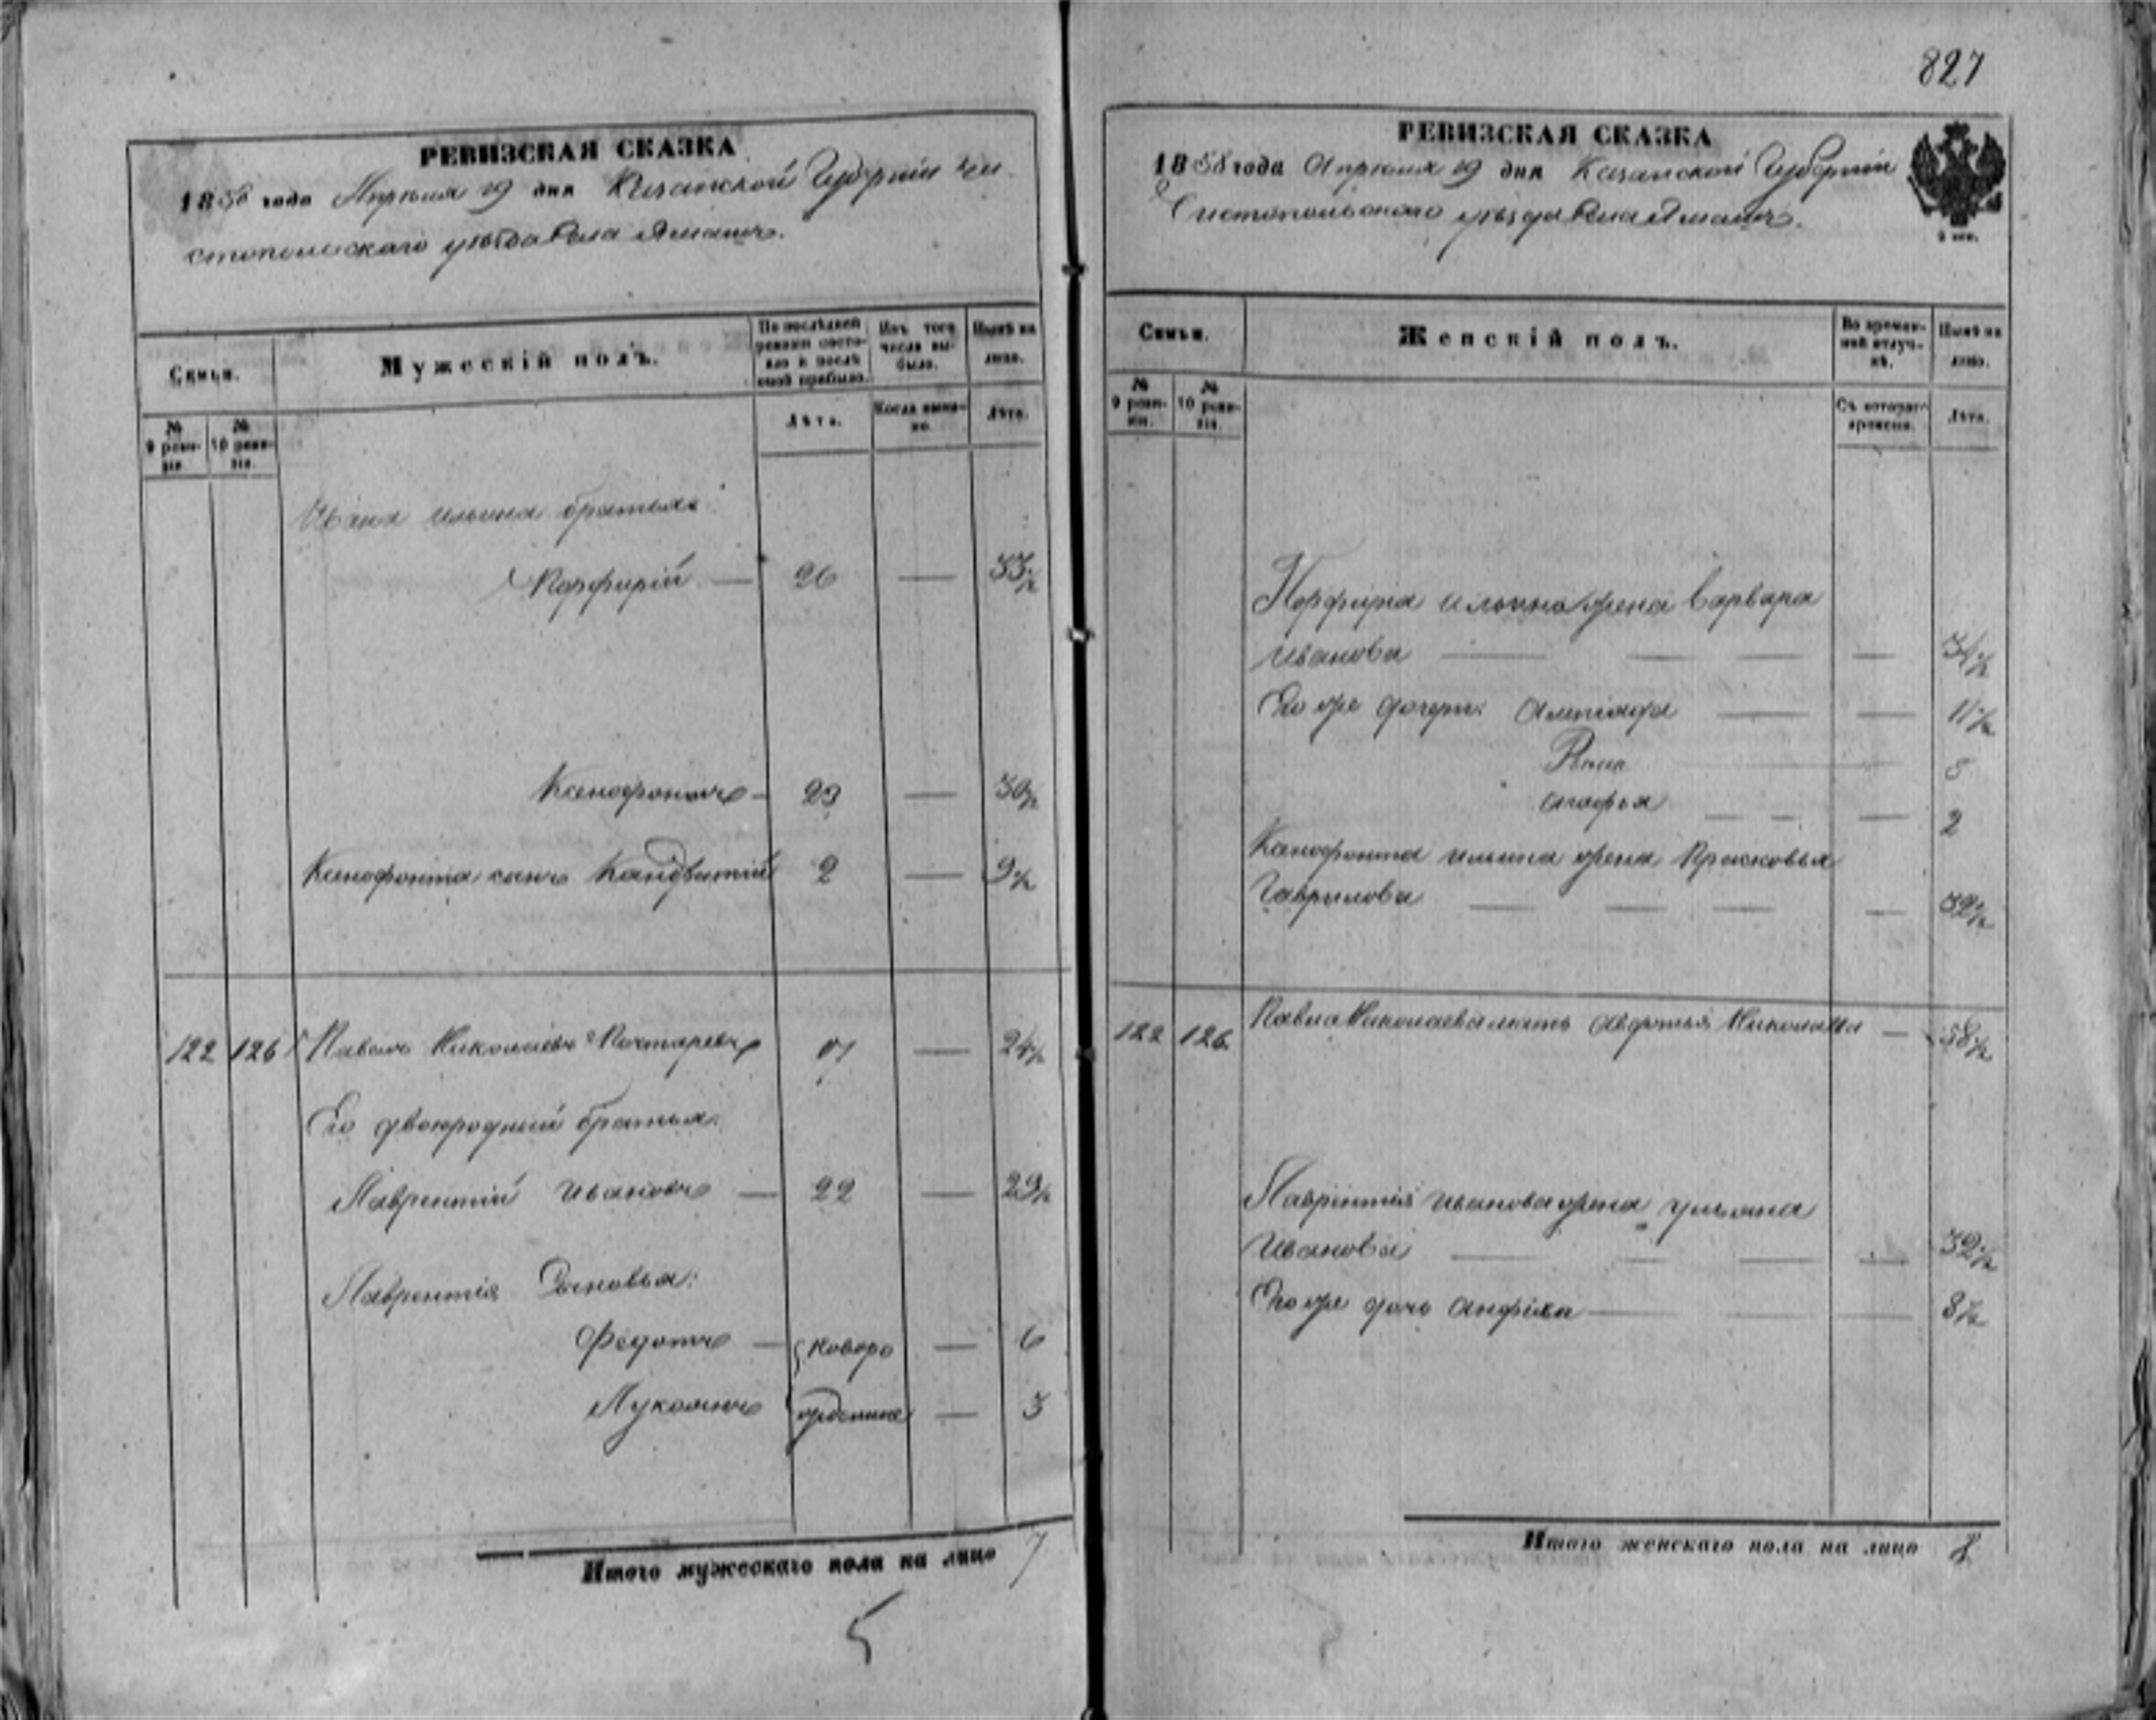 827
РЕВИЗСКАЯ СКАЗКА
1858 года Апреля 19 дня Казанской Губернии Чи-
стопольскаго уѣзда Села
Семьи.
Мужескій полъ.
По послѣдней ревизіи состояло и послѣ оной прибыло.
Изъ того числа выбыло.
Нынѣ на лицо.
№ 9 ревизіи.
№ 10 ревизіи.
Лѣта.
Когда именно.
Лѣта.
Ивана Ильина братья:
Порфирій — 26 — 33½
Ксенофонтъ — 23 — 30½
Ксенофонта сынъ 2 — 9½
122 126 Павелъ Николаевъ 17 — 24½
Его двоюродный братья:
Лаврентій Ивановъ — 22 — 29½
Лаврентія Сыновья:
Федотъ — новоро 6
жденные — 3
Итого мужескаго пола на лицо 7
5
РЕВИЗСКАЯ СКАЗКА
1858 года Апреля 19 дня Казанской Губерніи
Чистопольскаго уѣзда Села
Семьи.
Женскій полъ.
Во временной отлучкѣ.
Нынѣ на лицо.
№ 9 ревизіи.
№ 10 ревизіи.
Съ котораго времени.
Лѣта.
Порфирія Ильина жена Варвара
Иванова — — — — 34½
Его же дочери: — — 11½
5
Агафья — — — 2
Ксенофонта Ильина жена Прасковья
Гаврилова — — — — 32½
122 126. Павла Николаева мать Авдотья — 58½
Лаврентія Иванова жена Ульяна
Иванова — — — — 32½
Его же дочь — — — 8½
Итого женскаго пола на лицо 8